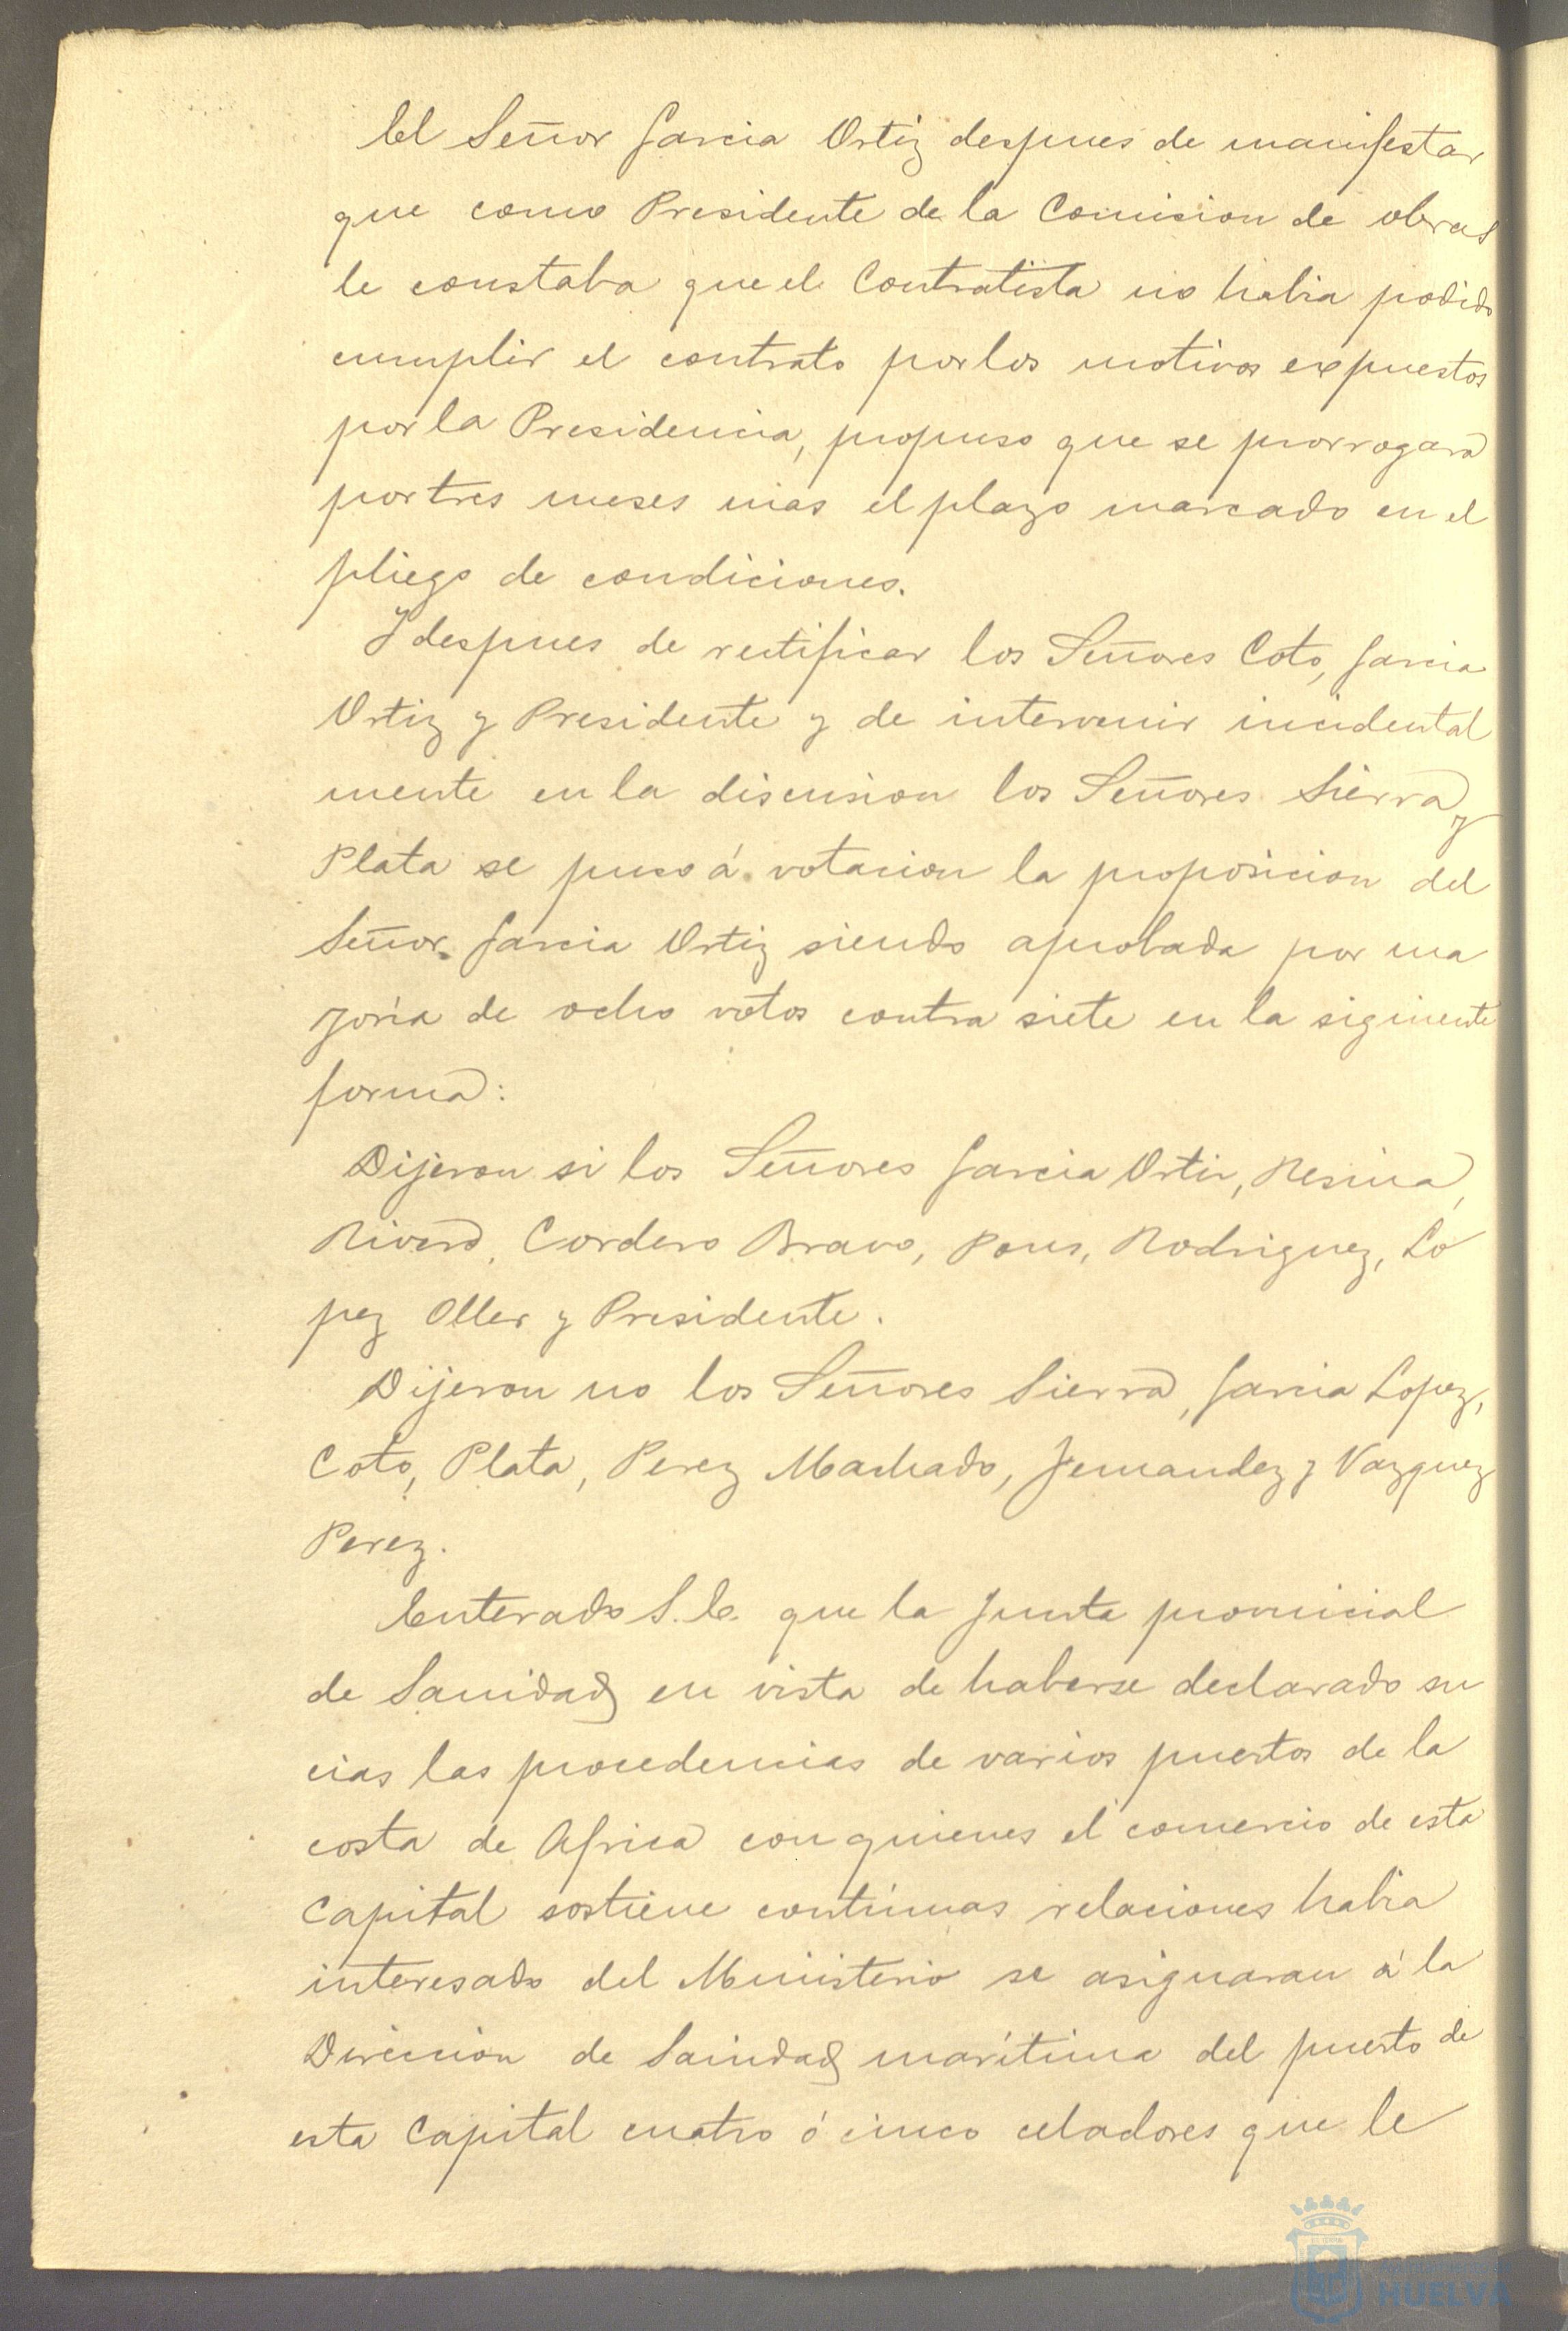 El Señor Garcia Ortiz despues de manifestar
que como Presidente de la Comision de obras
le constaba que el Contratista no habia podido
cumplir el contrato por los motivos expuestos
por la Presidencia, propuso que se prorrogara
por tres meses mas el plazo marcado en el
pliego de condiciones.
Y despues de rectificar los Señores Coto, Garcia
Ortiz y Presidente y de intervenir incidental
mente en la discusion los Señores Sierra y
Plata se puso á votacion la proposicion del
Señor Garcia Ortiz siendo aprobada por ma
yoria de ocho votos contra siete en la siguiente
forma:
Dijeron si los Señores Garcia Ortiz, Resina,
Rivero, Cordero Bravo, Pons, Rodriguez, Lo
pez Oller y Presidente.
Dijeron no los Señores Sierra, Garcia Lopez,
Coto, Plata, Perez Machado, Fernandez y Vazquez
Perez.
Enterado S.E. que la Junta provincial
de Sanidad en vista de haberse declarado su
cias las procedencias de varios puertos de la
costa de Africa con quienes el comercio de esta
Capital sostiene contínuas relaciones habia
interesado del Ministerio se asignaran á la
Direccion de Sanidad marítima del puerto de
esta Capital cuatro ó cinco celadores que le
HUELVA